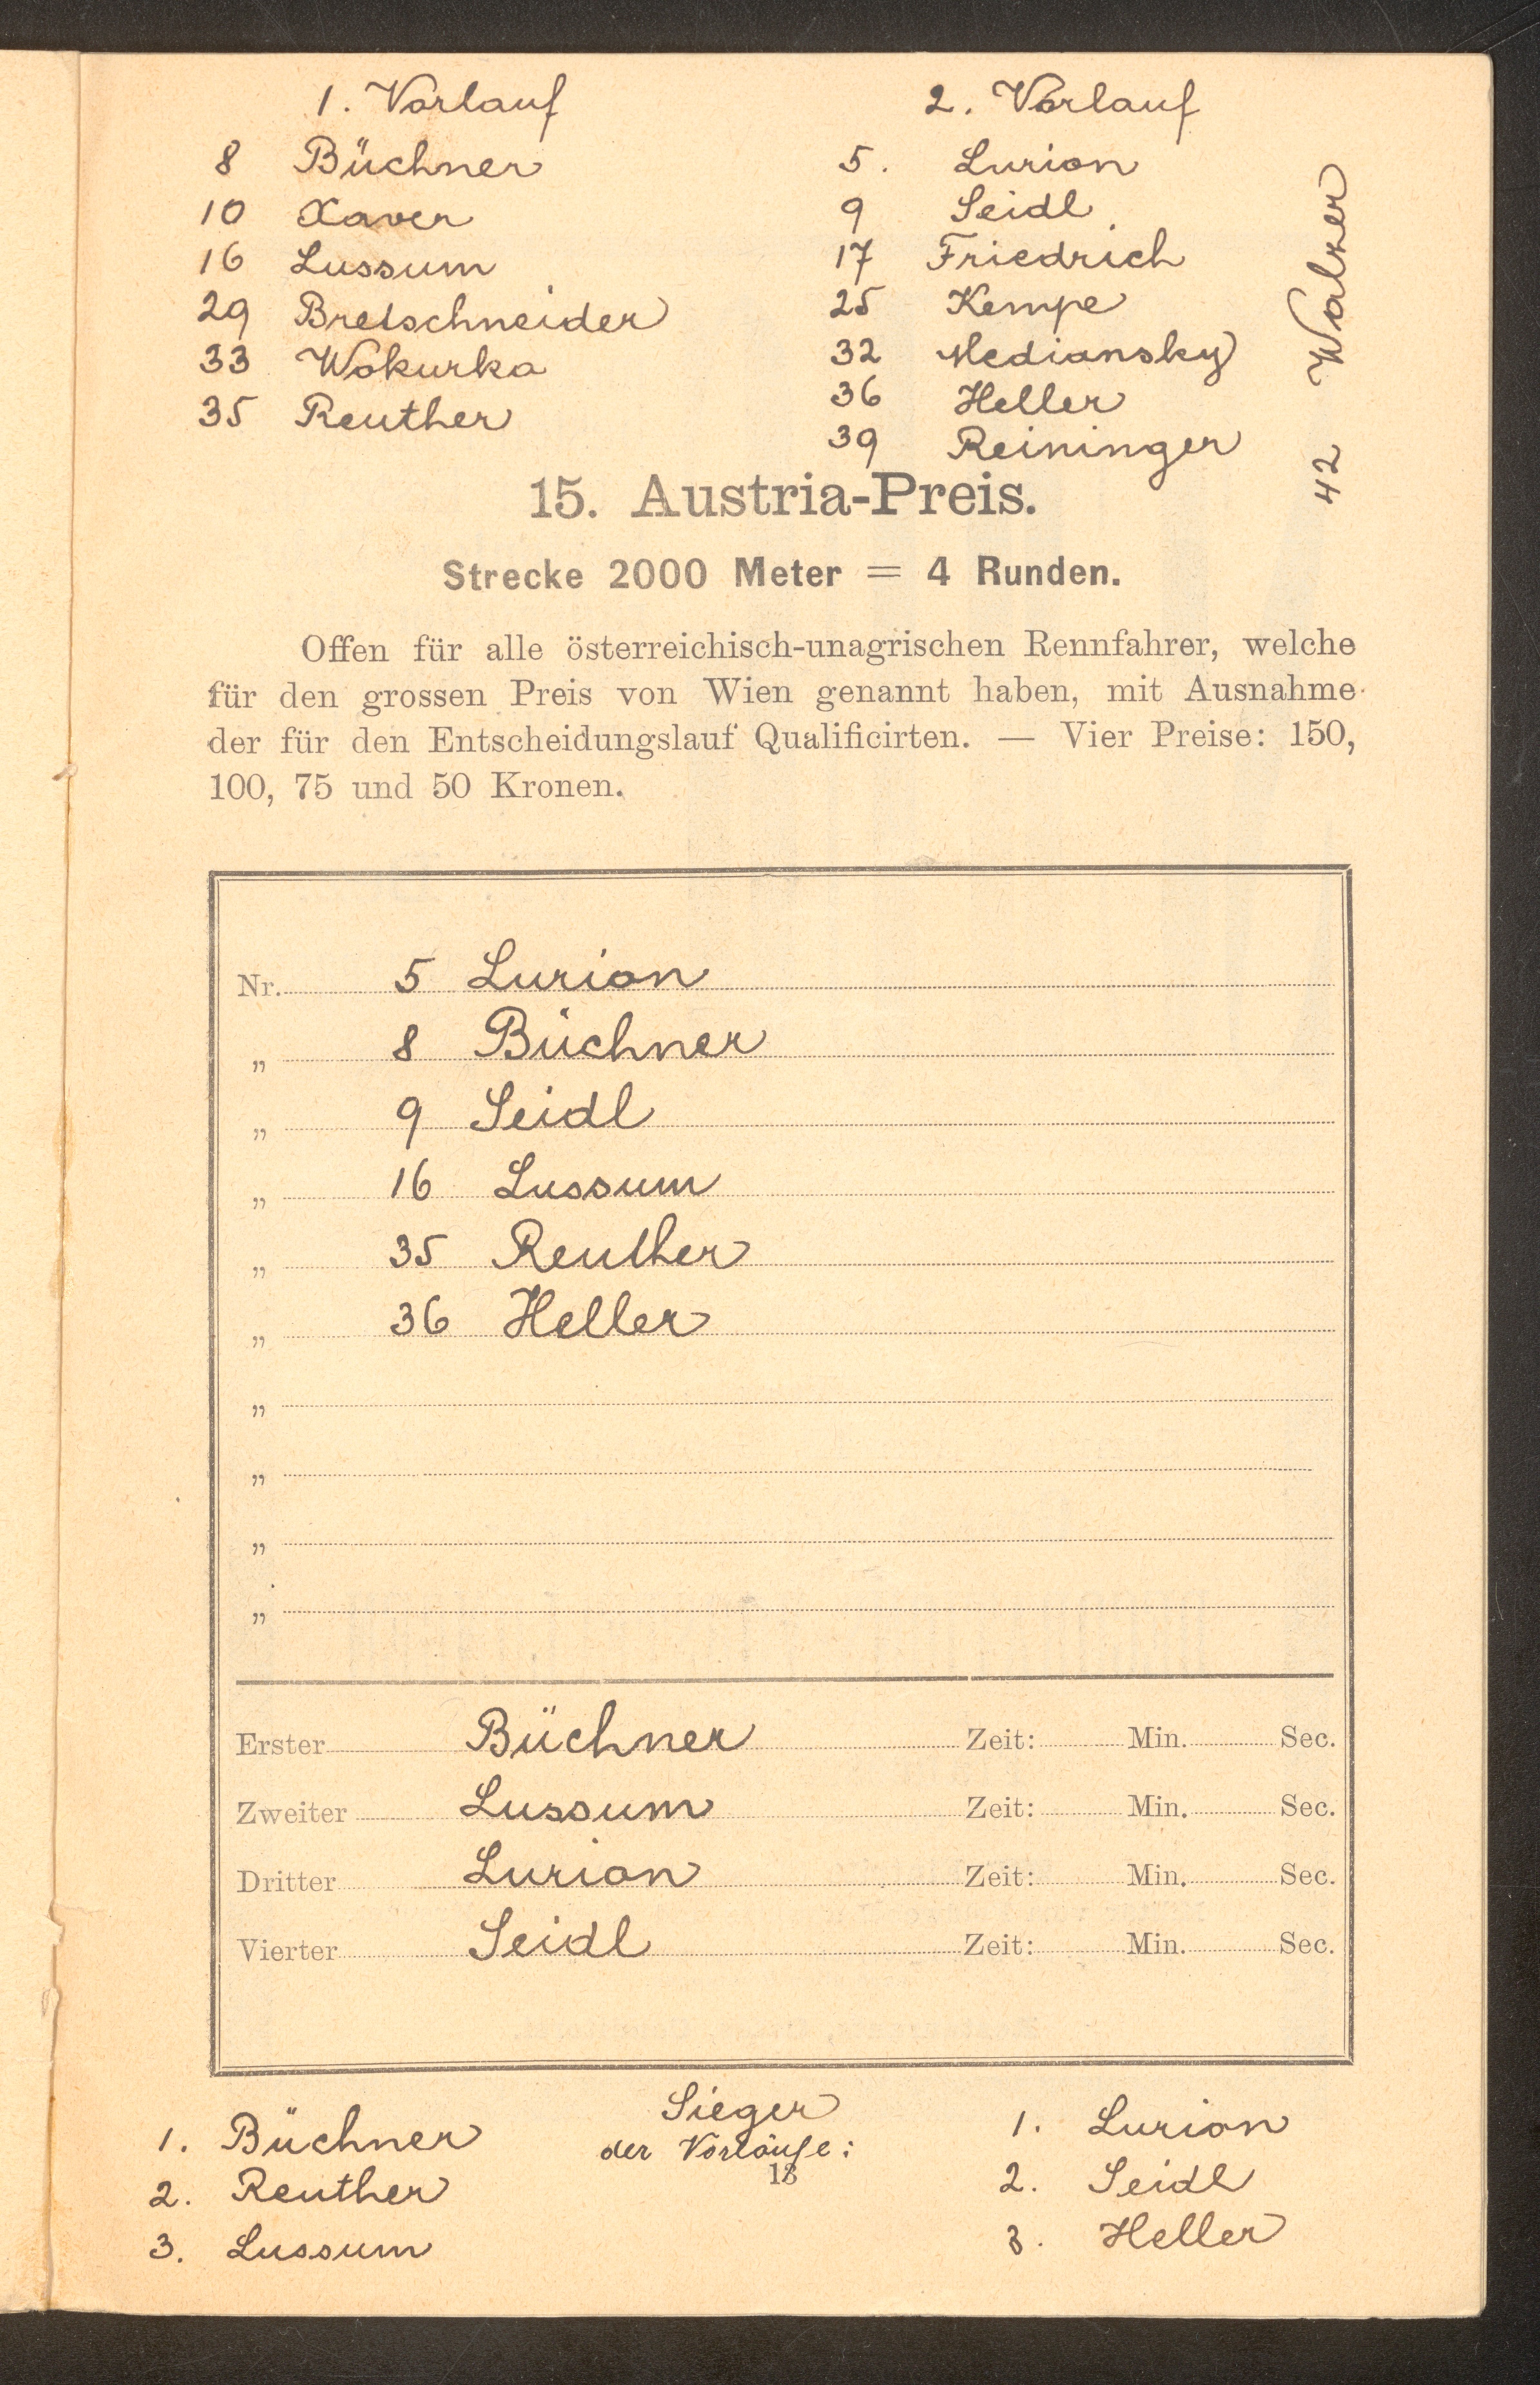 1. Vorlauf
8 Büchner
10 Xaver
16 Lussum
29 Bretschneider
33 Wokurka
35 Reuther
2. Vorlauf
5. Lurion
9 Seidl
17 Friedrich
25 Kempe
32 Mediansky
36 Heller
39 Reininger
42 Walzer
15. Austria-Preis.
Strecke 2000 Meter = 4 Runden.
Offen für alle österreichisch-unagrischen Rennfahrer, welche
für den grossen Preis von Wien genannt haben, mit Ausnahme
der für den Entscheidungslauf Qualificirten. — Vier Preise: 150,
100, 75 und 50 Kronen.
Nr. 5 Lurion
„ 8 Büchner
„ 9 Seidl
„ 16 Lussum
„ 35 Reuther
„ 36 Heller
„
„
„
„
Erster Büchner Zeit: Min. Sec.
Zweiter Lussum Zeit: Min. Sec.
Dritter Lurion Zeit: Min. Sec.
Vierter Seidl Zeit: Min. Sec.
Sieger
der Vorläufe:
1. Büchner
2. Reuther
3. Lussum
1. Lurion
2. Seidl
3. Heller
18